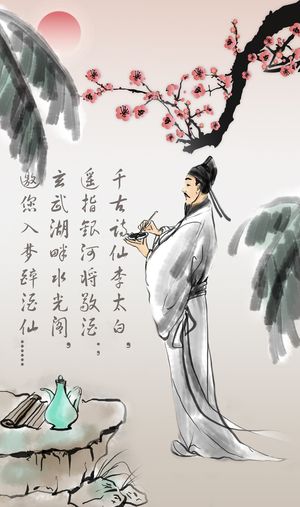 千古诗仙李太白，
遥指银河将敬酒；
玄武湖畔水光阁，
邀您入梦醉酒仙……